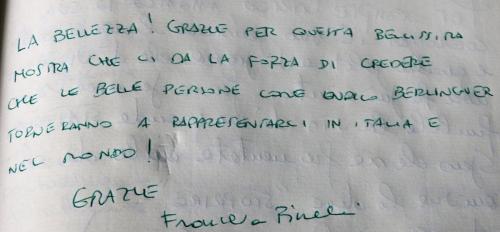 LA BELLEZZA! GRAZIE PER QUESTA BELLISSIMA
MOSTRA CHE CI DA LA FORZA DI CREDERE
CHE LE BELLE PERSONE COME ENRICO BERLINGUER
TORNERANNO A RAPPRESENTARCI IN ITALIA E
NEL MONDO!
GRAZIE